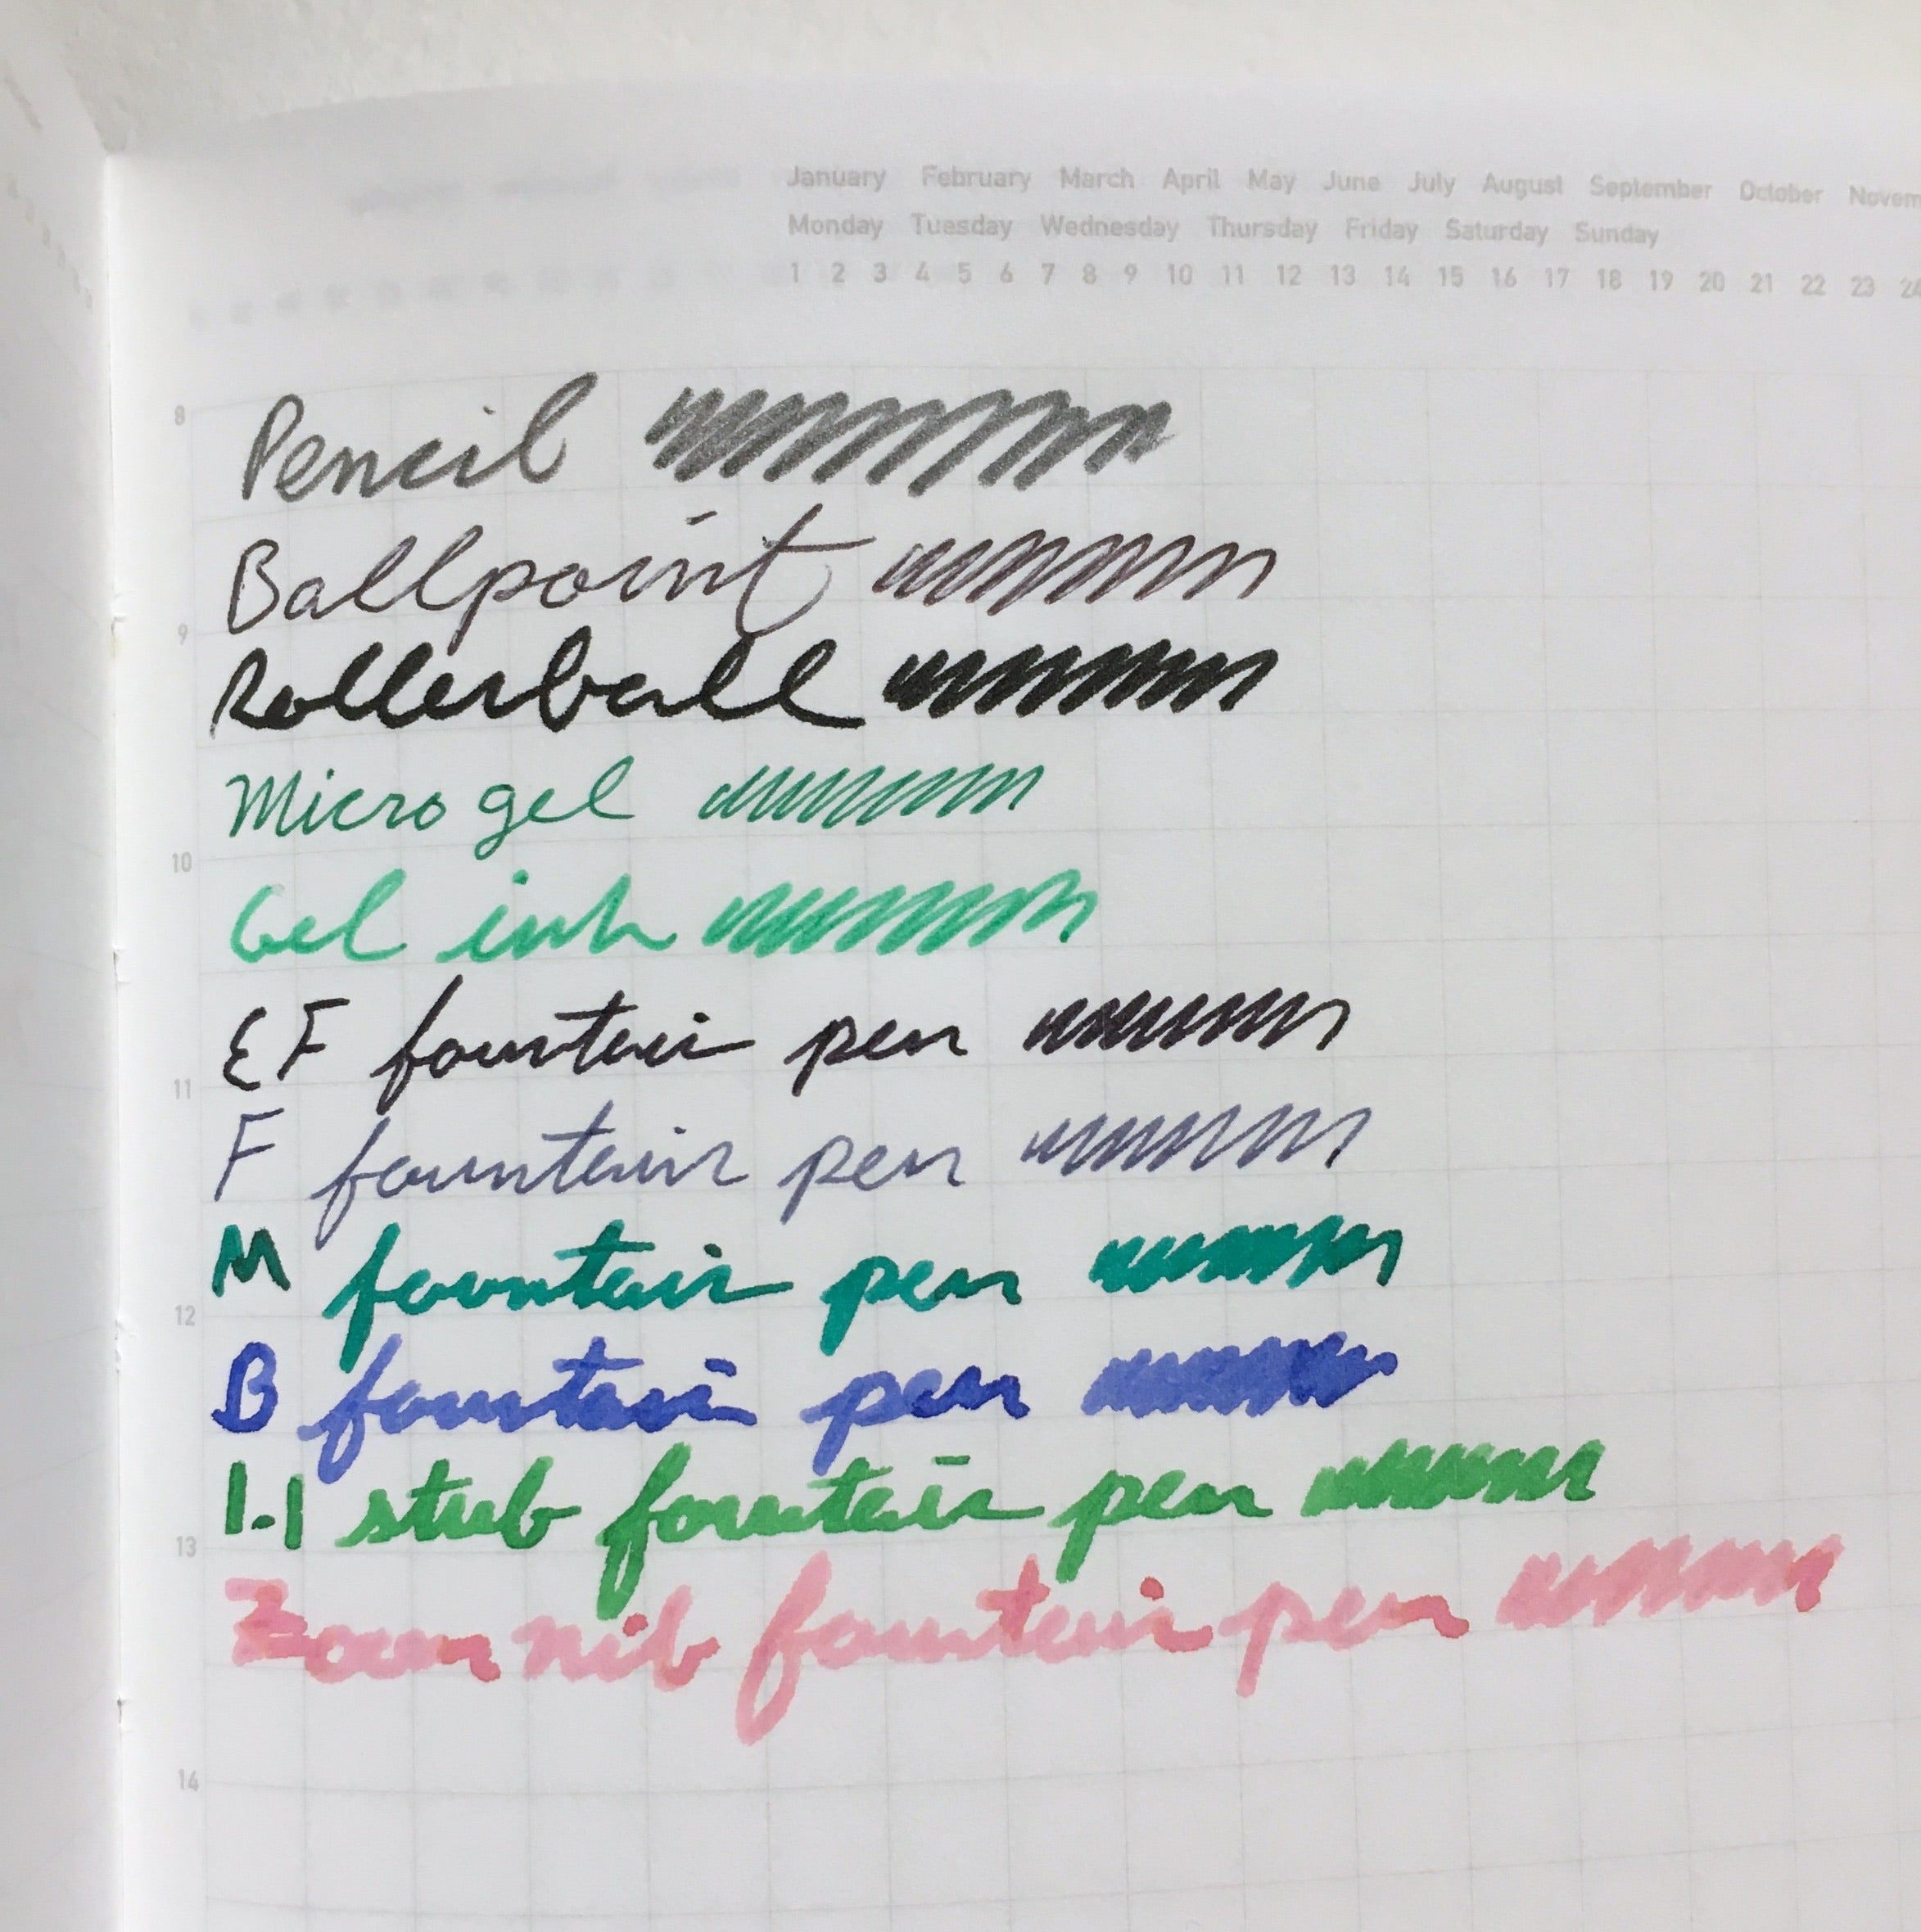 January February March April May June July August September October Novem
Monday Tuesday Wednesday Thursday Friday Saturday Sunday
1 2 3 4 5 6 7 8 9 10 11 12 13 14 15 16 17 18 19 20 21 22 23 24
8
Pencil
Ballpoint
9
Rollerball
Micro gel
10
Gel ink
EF fountain pen
11
F fountain pen
M fountain pen
12
B fountain pen
1.1 stub fountain pen
13
Zoom nib fountain pen
14